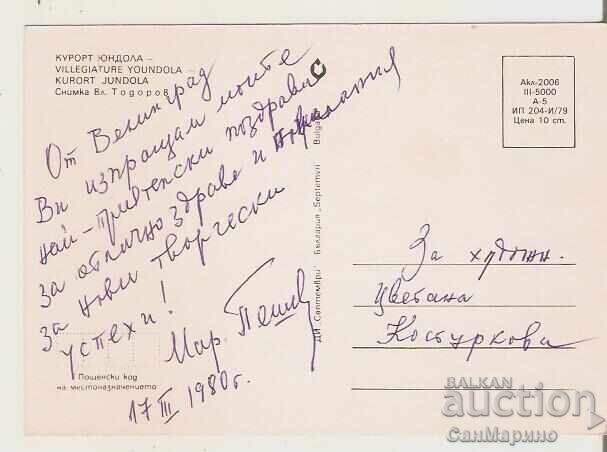 КУРОРТ ЮНДОЛА –
VILLEGIATURE YOUNDOLA –
KURORT JUNDOLA
Снимка Вл. Тодоров
От Велинград
Ви изпращам моите
най-приятелски поздрави
за отлично здраве и пожелания
за нови творчески
успехи!
Мар. Пешев
17 III 1980г.
Пощенски код
на местоназначението
ДИ „Септември“ България „Septemvri“ Bulgar
Акл-2006
III-5000
А-5
ИП 204-И/79
Цена 10 ст.
За художн.
Цветана
Костуркова
BALKAN
auction
СанМарино